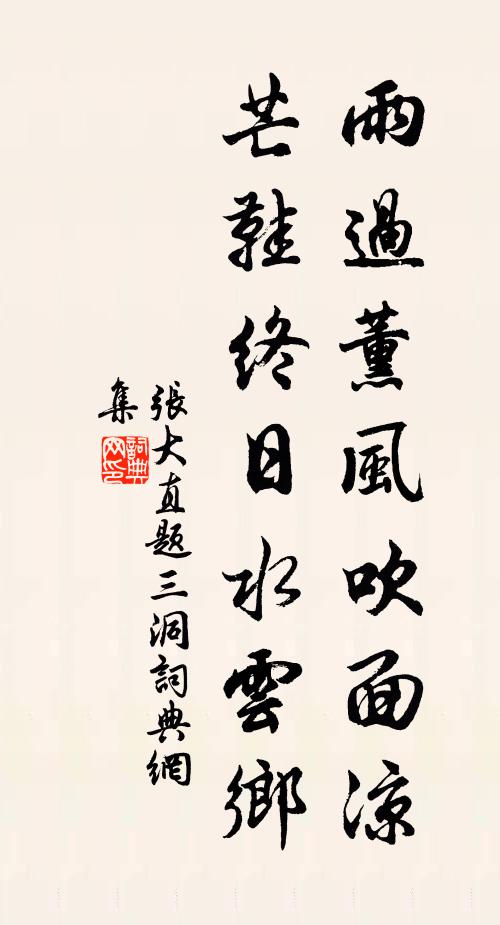 雨過薰風吹面涼
芒鞋終日水雲鄉
張大直題三洞詞典網
集
詞典
网印